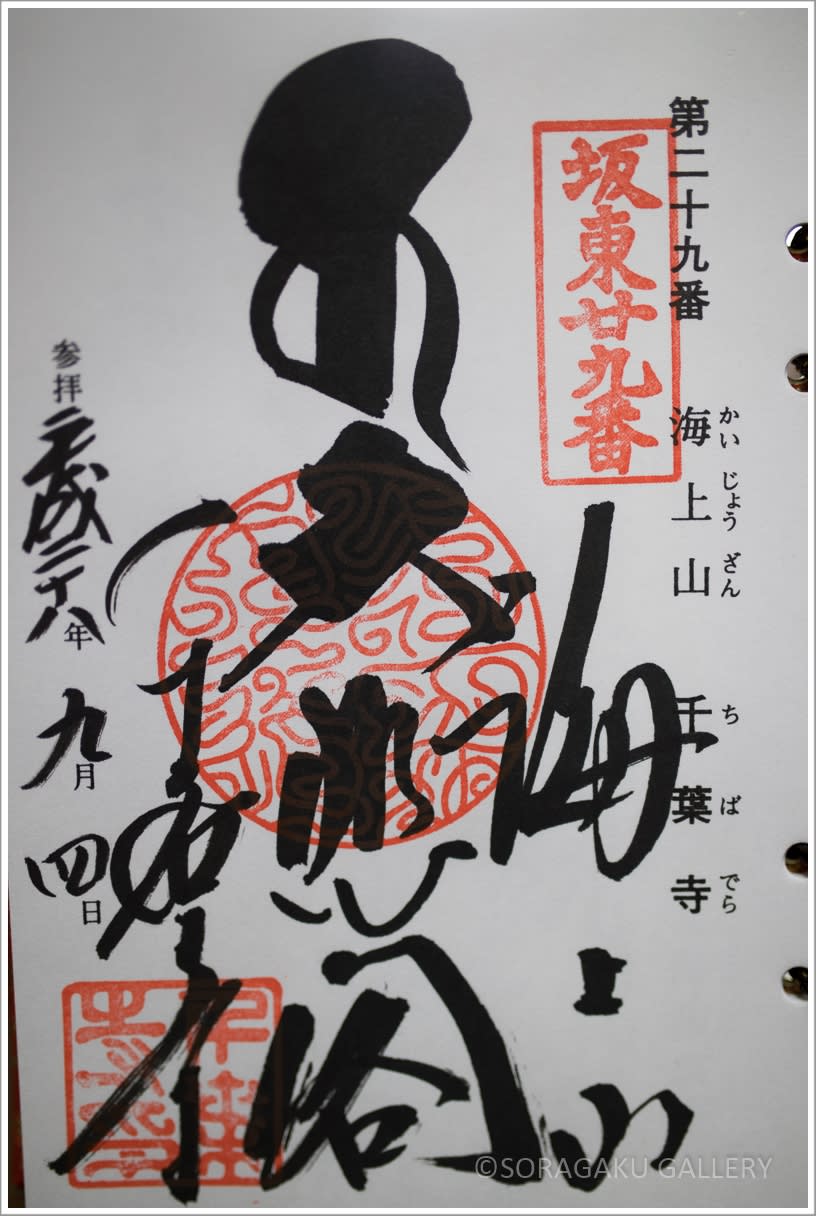 第二十九番 海上山 千葉寺
かいじょうざん ちばでら
坂東廿九番
海上山
大悲殿
千葉寺
参拝 平成二十八年九月四日
©SORAGAKU GALLERY